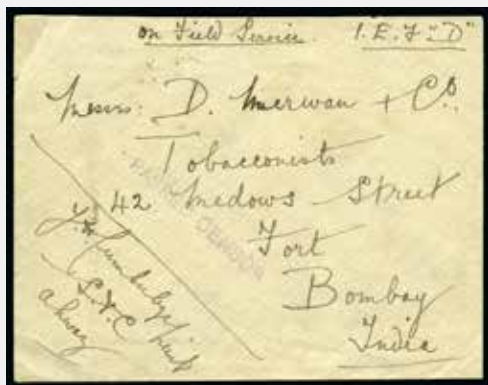 on Field Service. I.E.F "D"
Messrs. D. Merwan + Co.
Tobacconists
42 Medows Street
Fort
Bombay
India
CENSOR